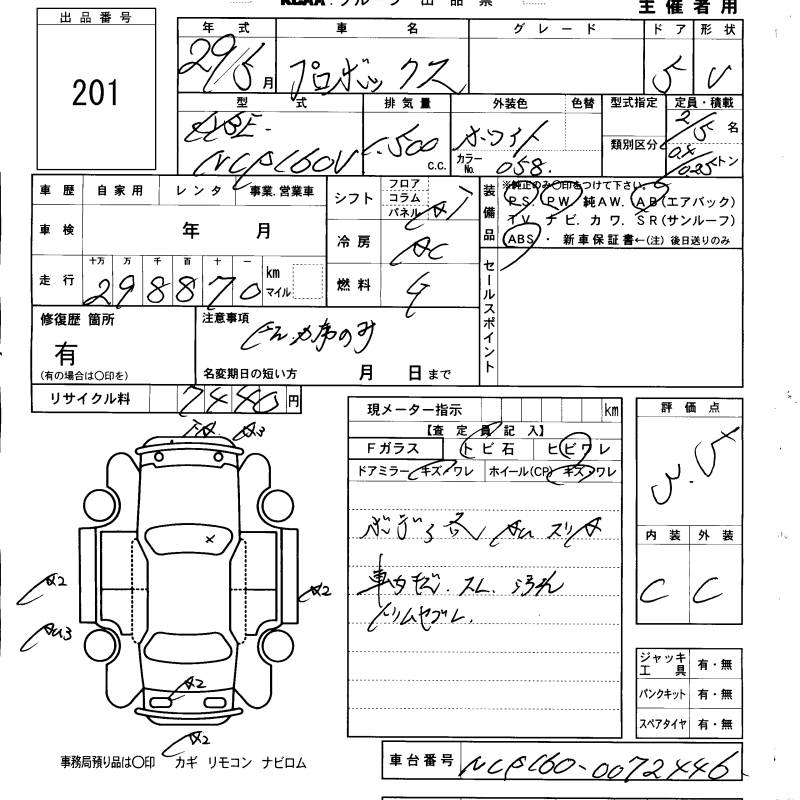 主催者用
出品番号
201
年式 車名 グレード ドア 形状
29/5月 プロボックス 5 V
型式 排気量 外装色 色替 型式指定 定員・積載
DBE- 1,500 c.c. ホワイト 類別区分 2/5名
NCP160V カラーNo. 058 0.4/0.25トン
車歴 自家用 レンタ 事業.営業車
車検 年 月
走行 十万 万 千 百 十 一 km マイル
298870
シフト フロア コラム パネル AT
冷房 AC
燃料 G
装備品 ※純正のみ〇印をつけて下さい。
PS PW 純AW. AB(エアバック)
TV ナビ. カワ. SR(サンルーフ)
ABS ・ 新車保証書←(注) 後日送りのみ
セールスポイント
修復歴 箇所
有
(有の場合は〇印を)
注意事項
名変期日の短い方 月 日まで
リサイクル料 7440円
現メーター指示 km
【査定員記入】
Fガラス トビ石 ヒビワレ
ドアミラー キズ・ワレ ホイール(CP) キズ・ワレ
評価点
3.5
内装 外装
C C
A2
A2
A2
A2
ジャッキ工具 有・無
パンクキット 有・無
スペアタイヤ 有・無
事務局預り品は〇印 カギ リモコン ナビロム
車台番号 NCP160-0072446